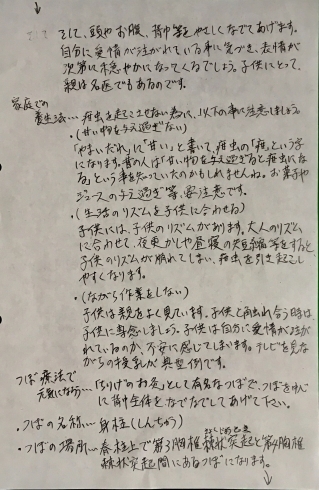 ↓
そして、頭やお腹、背中等をやさしくなでてあげます。
自分に愛情が注がれている事に気づき、表情が
次第に穏やかになってくるでしょう。子供にとって、
親は名医でもあるのです。
家庭での
養生法… 疳虫を起こさせない為に、以下の事に注意しましょう。
・(甘い物を与え過ぎない)
「やまいだれ」に"甘い"と書いて、疳虫の「疳」という字
になります。昔の人は「甘い物を与え過ぎると疳虫にな
る」という事を知っていたのかもしれませんね。お菓子や
ジュースの与え過ぎ等、要注意です。
・(生活のリズムを子供に合わせる)
子供には、子供のリズムがあります。大人のリズム
に合わせて、夜更かしや昼寝の短縮等をすると、
子供のリズムが崩れてしまい、疳虫を引き起こし
やすくなります。
・(ながら作業をしない)
子供は親をよく見ています。子供と向き合う時は、
子供に専念しましょう。子供は自分に愛情が注が
れているのか、不安に感じてしまいます。テレビを見な
がらの授乳が典型例です。
つぼ療法で
元気になろう… 「ちりけのお灸」として有名なつぼで、つぼを中心
に背中全体をなでなでしてあげて下さい。
・つぼの名称… 身柱(しんちゅう)
・つぼの場所… 脊柱上で第3胸椎棘状突起と第4胸椎
棘状突起間にあるつぼになります。
↓